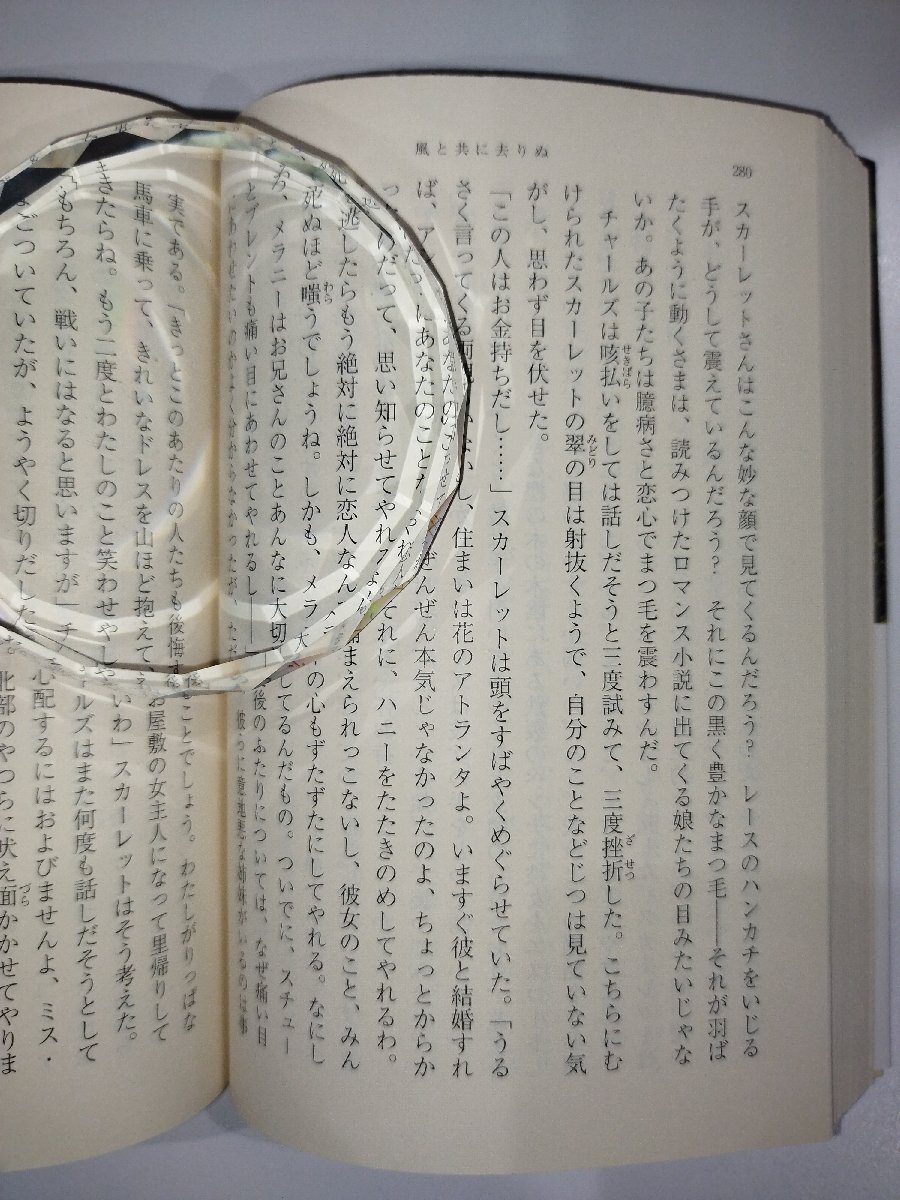 286
風と共に去りぬ
スカーレットさんはこんな妙な顔で見てくるんだろう? レースのハンカチをいじる
手が、どうして震えているんだろう? それにこの黒く豊かなまつ毛――それが羽ば
たくように動くさまは、読みつけたロマンス小説に出てくる娘たちの目みたいじゃな
いか。あの子たちは臆病さと恋心でまつ毛を震わすんだ。
チャールズは咳払いをしては話しだそうと三度試みて、三度挫折した。こちらにむ
けられたスカーレットの翠の目は射抜くようで、自分のことなどじつは見ていない気
がし、思わず目を伏せた。
「この人はお金持ちだし……」スカーレットは頭をすばやくめぐらせていた。「うる
さく言ってくる両親もいないし、住まいは花のアトランタよ。いますぐ彼と結婚すれ
ば、アシュ にあなたのこと ぜんぜん本気じゃなかったのよ、ちょっとからか
っ だけだって、思い知らせてやれる それに、ハニーをたたきのめしてやれるわ。
逃したらもう絶対に絶対に恋人なん 捕まえられっこないし、彼女のこと、みん
死ぬほど嗤うでしょうね。しかも、メラ の心もずたずたにしてやれる。なにし
ろ、メラニーはお兄さんのことあんなに大切 してるんだもの。ついでに、スチュー
とブレントも痛い目にあわせてやれるし――」 後のふたりについては、なぜ痛い目
にあわせたいのかよく分からなかったが、ただ 彼らに意地悪な姉妹がいるのは事
実である。「きっとこのあたりの人たちも後悔す ことでしょう。わたしがりっぱな
馬車に乗って、きれいなドレスを山ほど抱えて、 お屋敷の女主人になって里帰りして
きたらね。もう二度とわたしのこと笑わせやしな いわ」スカーレットはそう考えた。
「もちろん、戦いにはなると思いますが」チャールズはまた何度も話しだそうとして
まごついていたが、ようやく切りだした。 心配するにはおよびませんよ、ミス・
北部のやつらに吠え面かかせてやりま